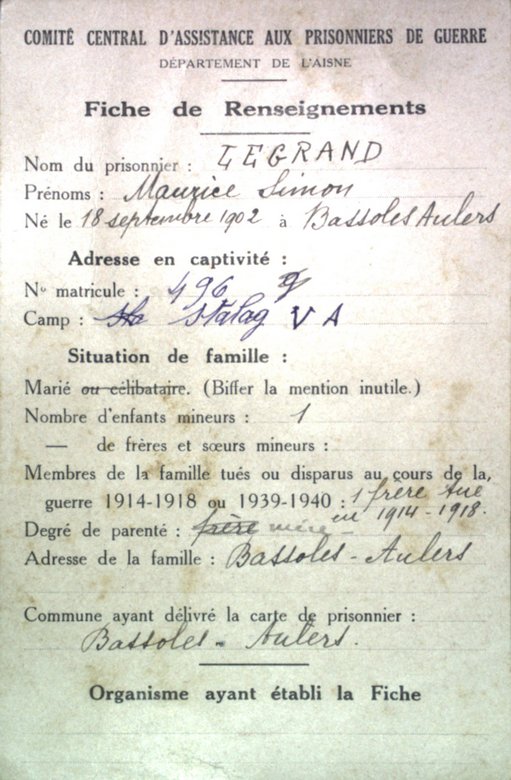 COMITÉ CENTRAL D'ASSISTANCE AUX PRISONNIERS DE GUERRE
DÉPARTEMENT DE L'AISNE
Fiche de Renseignements
Nom du prisonnier : LEGRAND
Prénoms : Maurice Simon
Né le 18 septembre 1902 à Bassoles Aulers
Adresse en captivité :
No matricule : 496
Camp : Stalag V A
Situation de famille :
Marié ou célibataire. (Biffer la mention inutile.)
Nombre d'enfants mineurs : 1
— de frères et sœurs mineurs :
Membres de la famille tués ou disparus au cours de la
guerre 1914-1918 ou 1939-1940 : 1 frère tué
en 1914-1918.
Degré de parenté : frère
Adresse de la famille : Bassoles - Aulers
Commune ayant délivré la carte de prisonnier :
Bassoles - Aulers.
Organisme ayant établi la Fiche